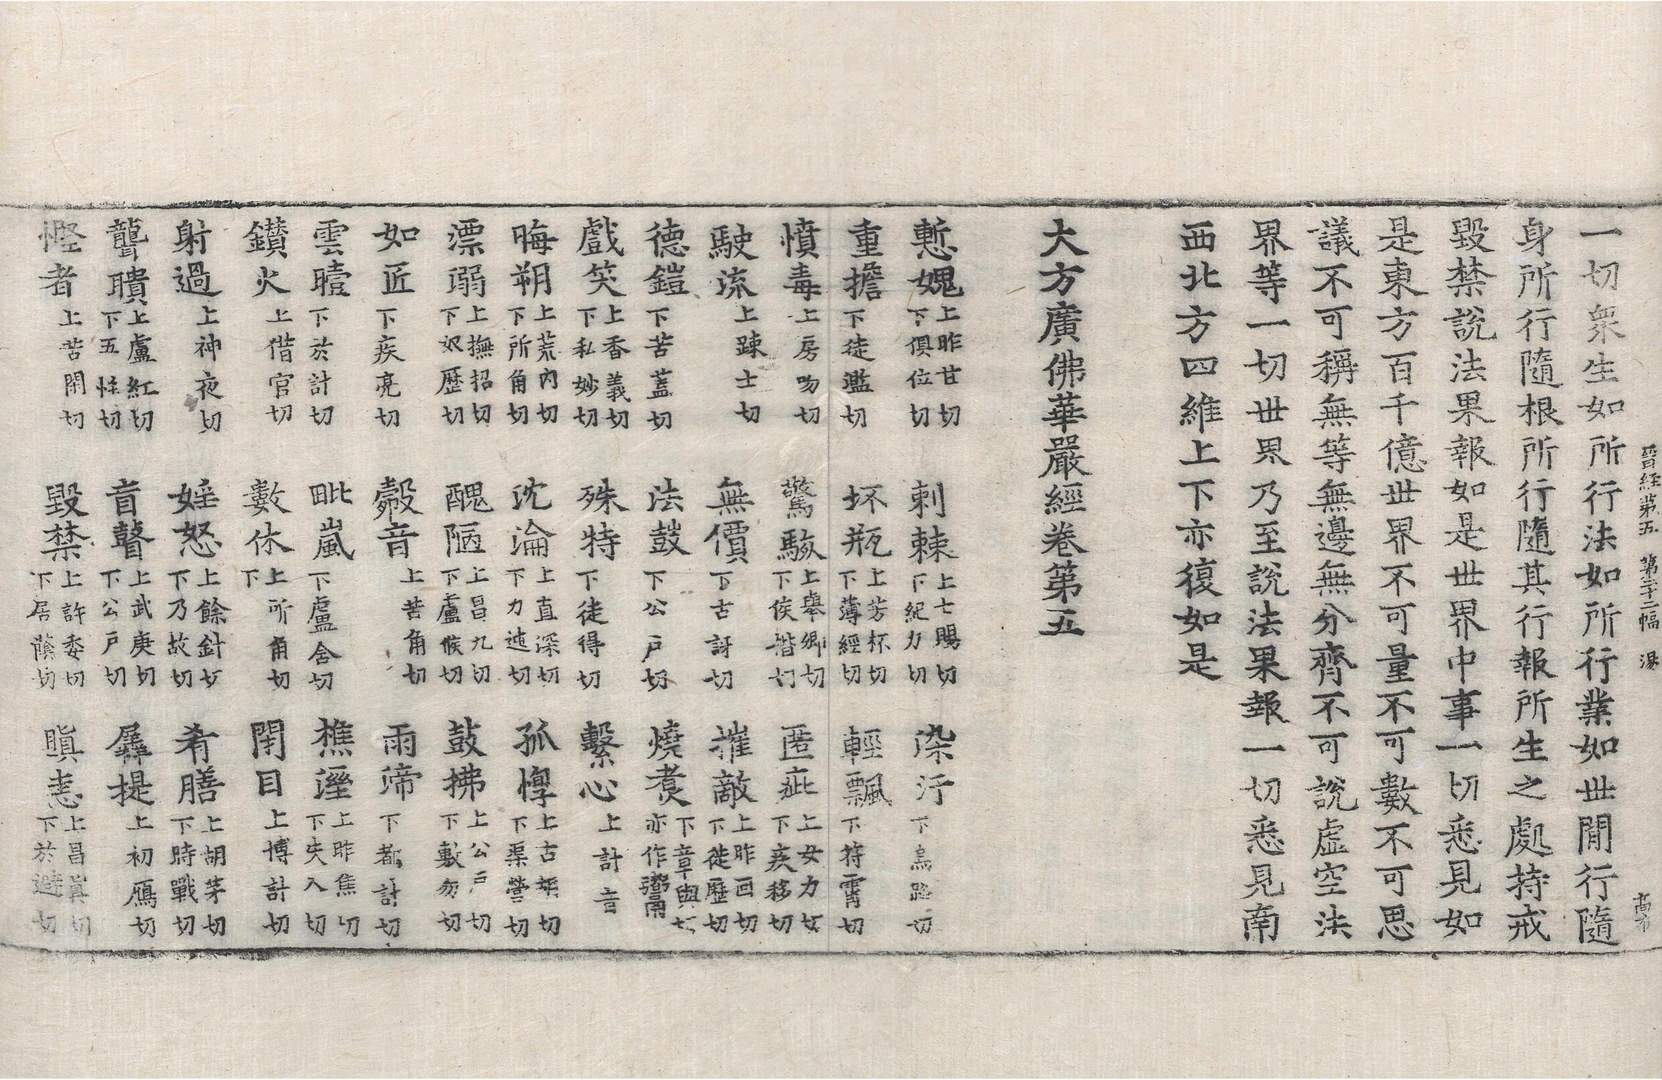 晉經第五　第二十二幅　湯
一切衆生如所行法如所行業如世閒行隨
身所行隨根所行隨其行報所生之處持戒
毀禁說法果報如是世界中事一切悉見如
是東方百千億世界不可量不可數不可思
議不可稱無等無邊無分齊不可說虛空法
界等一切世界乃至說法果報一切悉見南
西北方四維上下亦復如是
大方廣佛華嚴經卷第五
慙媿上昨甘切下俱位切　刺棘上七賜切下紀力切　染汙下烏路切
重擔下徒濫切　坏瓶上芳杯切下薄經切　輕飄下符霄切
憤毒上房吻切　驚駭上舉卿切下侯揩切　匿疵上女力切下疾移切
駛流上踈士切　無價下古訝切　摧敵上昨回切下徒歷切
德鎧下苦蓋切　法鼓下公戶切　燒煑下章與切亦作鬻
戲笑上香義切下私妙切　殊特下徒得切　繫心上計音
晦朔上荒內切下所角切　沈淪上直深切下力迍切　孤惸上古胡切下渠營切
漂溺上撫招切下奴歷切　醜陋上昌九切下盧候切　鼓拂上公戶切下敷勿切
如匠下疾亮切　㲉音上苦角切　雨渧下都計切
雲曀下於計切　毗嵐下盧含切　樵溼上昨焦切下失入切
鑚火上借官切　數休上所角切下　閉目上博計切
射過上神夜切　婬怒上餘針切下乃故切　肴膳上胡茅切下時戰切
聾聵上盧紅切下五怪切　盲瞽上武庚切下公戶切　羼提上初鴈切
慳者上苦閑切　毀禁上許委切下居蔭切　瞋恚上昌眞切下於避切